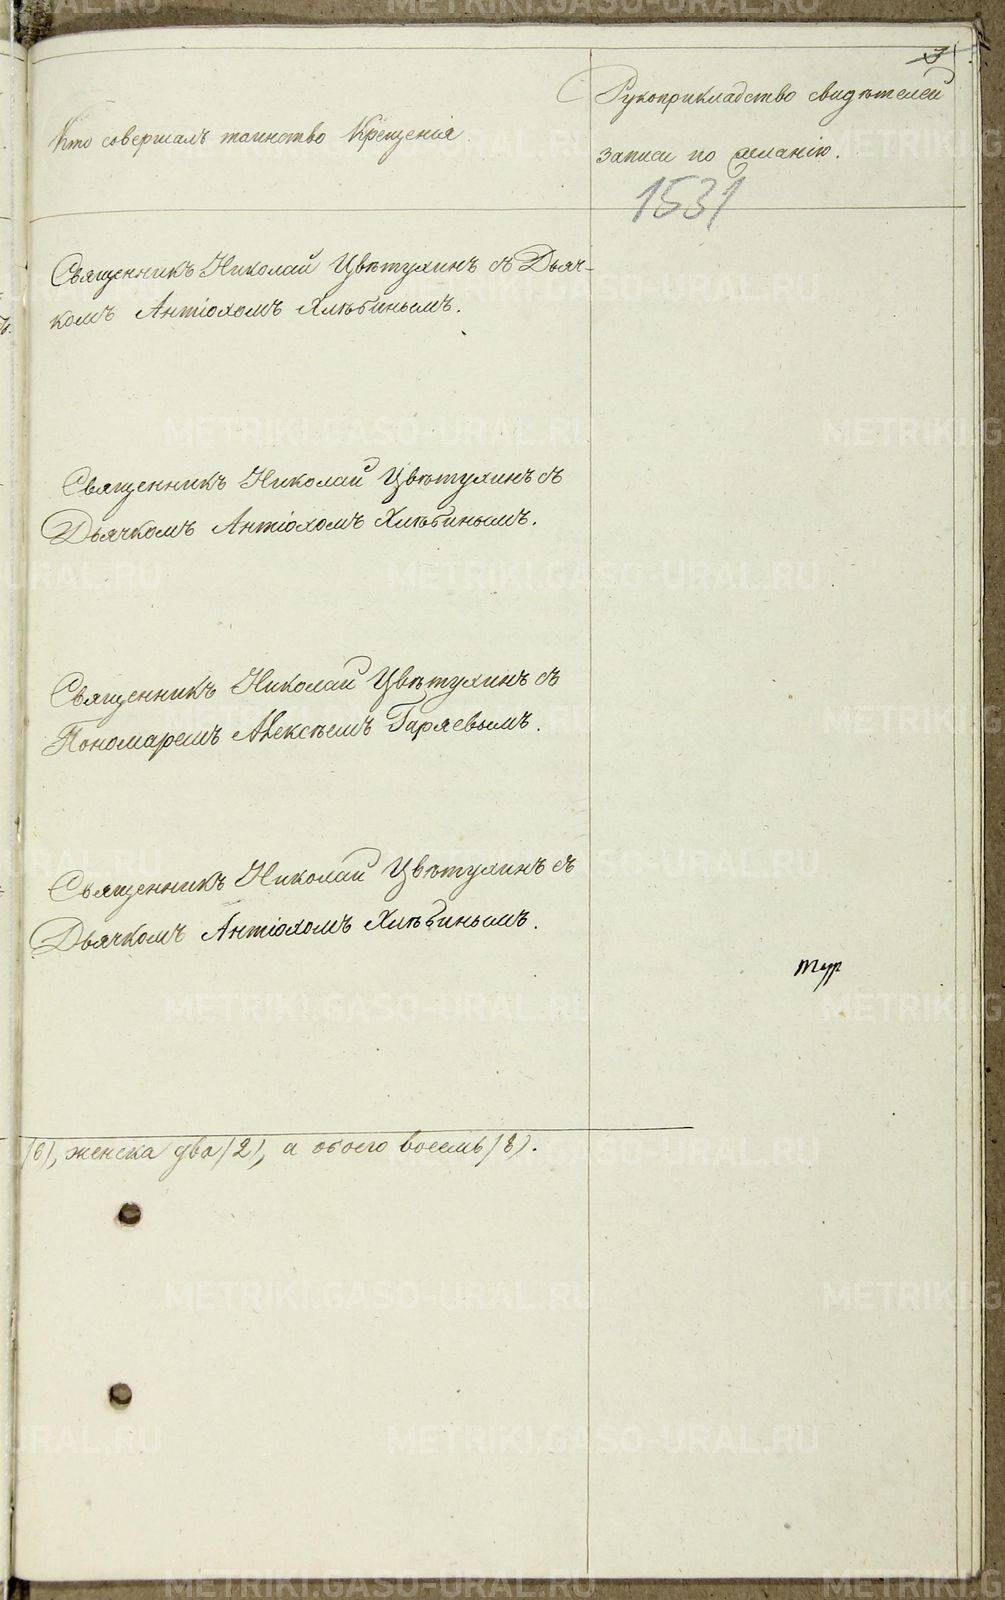 3
Рукоприкладство свидѣтелей
Кто совершалъ таинство Крещенія
записи по желанію.
1531
Священникъ Николай Цвѣтухинъ съ Дьяч-
комъ Антіохомъ Хлѣбинымъ.
Священникъ Николай Цвѣтухинъ съ
Дьячкомъ Антіохомъ Хлѣбинымъ.
Священникъ Николай Цвѣтухинъ съ
Пономаремъ Алексѣемъ Гаряевымъ.
Священникъ Николай Цвѣтухинъ съ
Дьячкомъ Антіохомъ Хлѣбинымъ.
/6/, женска два /2/, а обоего восемь /8/.
METRIKI.GASO-URAL.RU